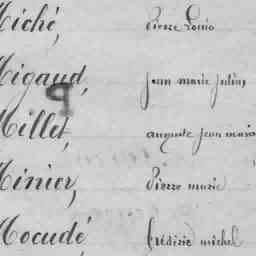 Miché, Pierre Louis
Migaud, jean marie julien
Millet, auguste jean marie
Minier, Pierre marie
Mocudé frédéric michel